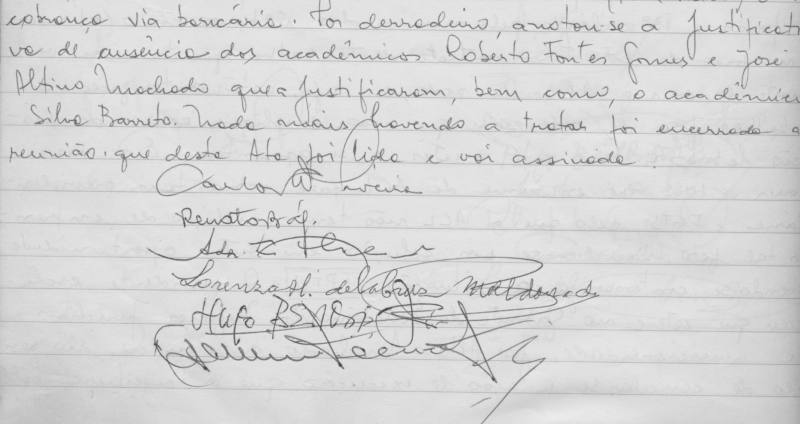 cobrança via bancária. Por derradeiro, anotou-se a justificati
va de ausência dos acadêmicos Roberto Fontes Gomes e José
Altino Machado que a justificaram, bem como, o acadêmico
Silva Barreto. Nada mais havendo a tratar foi encerrada a
reunião. que desta Ata foi lida e vai assinada.
Carlos
Renato Bráz.
Lorenza H. de la
Maldonado
Hugo